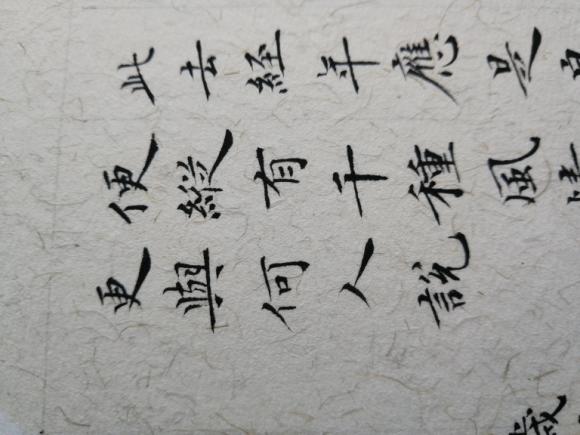 此去經年應是
便縱有千種風
更與何人說
歲